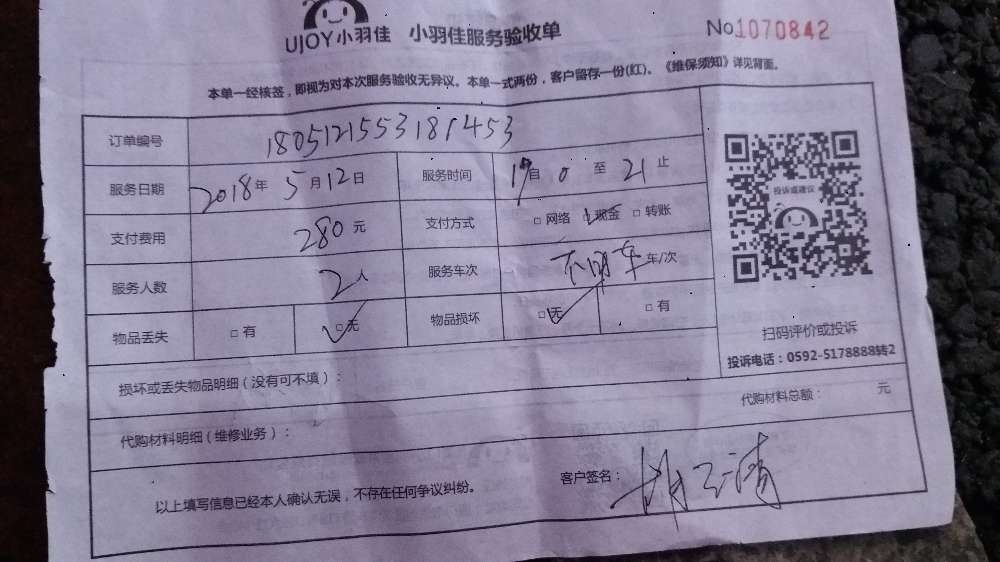 UJOY小羽佳 小羽佳服务验收单 No.1070842
本单一经核签，即视为对本次服务验收无异议。本单一式两份，客户留存一份(红)。《维保须知》详见背面。
订单编号 1805121553181453
服务日期 2018年5月12日 服务时间 19自0至21止
支付费用 280元 支付方式 □网络 □现金 □转账
服务人数 2人 服务车次 不用车车/次
物品丢失 □有 □无 物品损坏 □无 □有
投诉或建议
扫码评价或投诉
投诉电话：0592-5178888转2
损坏或丢失物品明细（没有可不填）：
代购材料明细（维修业务）： 代购材料总额： 元
以上填写信息已经本人确认无误，不存在任何争议纠纷。 客户签名：